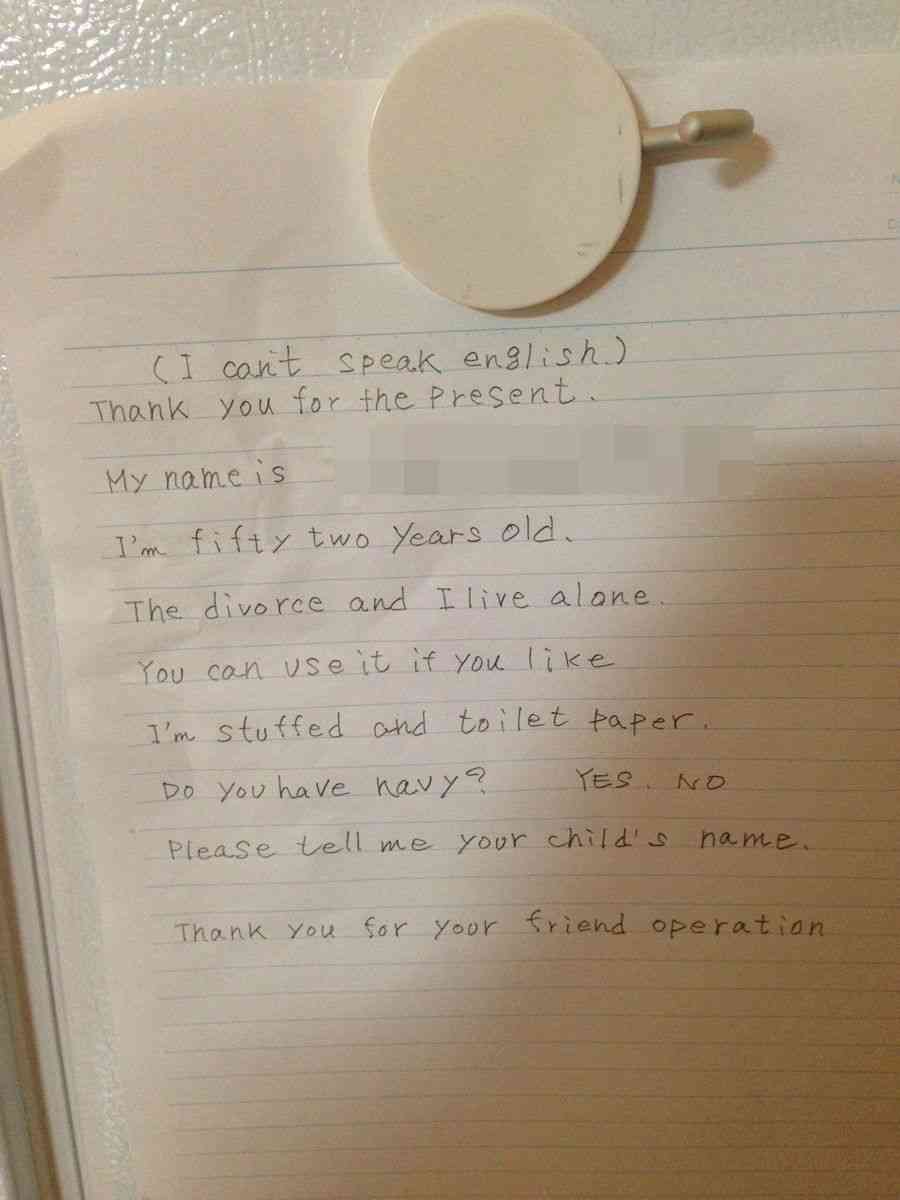 (I can't speak english.)
Thank you for the Present.
My name is
I'm fifty two years old.
The divorce and I live alone.
You can use it if you like
I'm stuffed and toilet paper.
Do you have navy? YES. NO
Please tell me your child's name.
Thank you for your friend operation